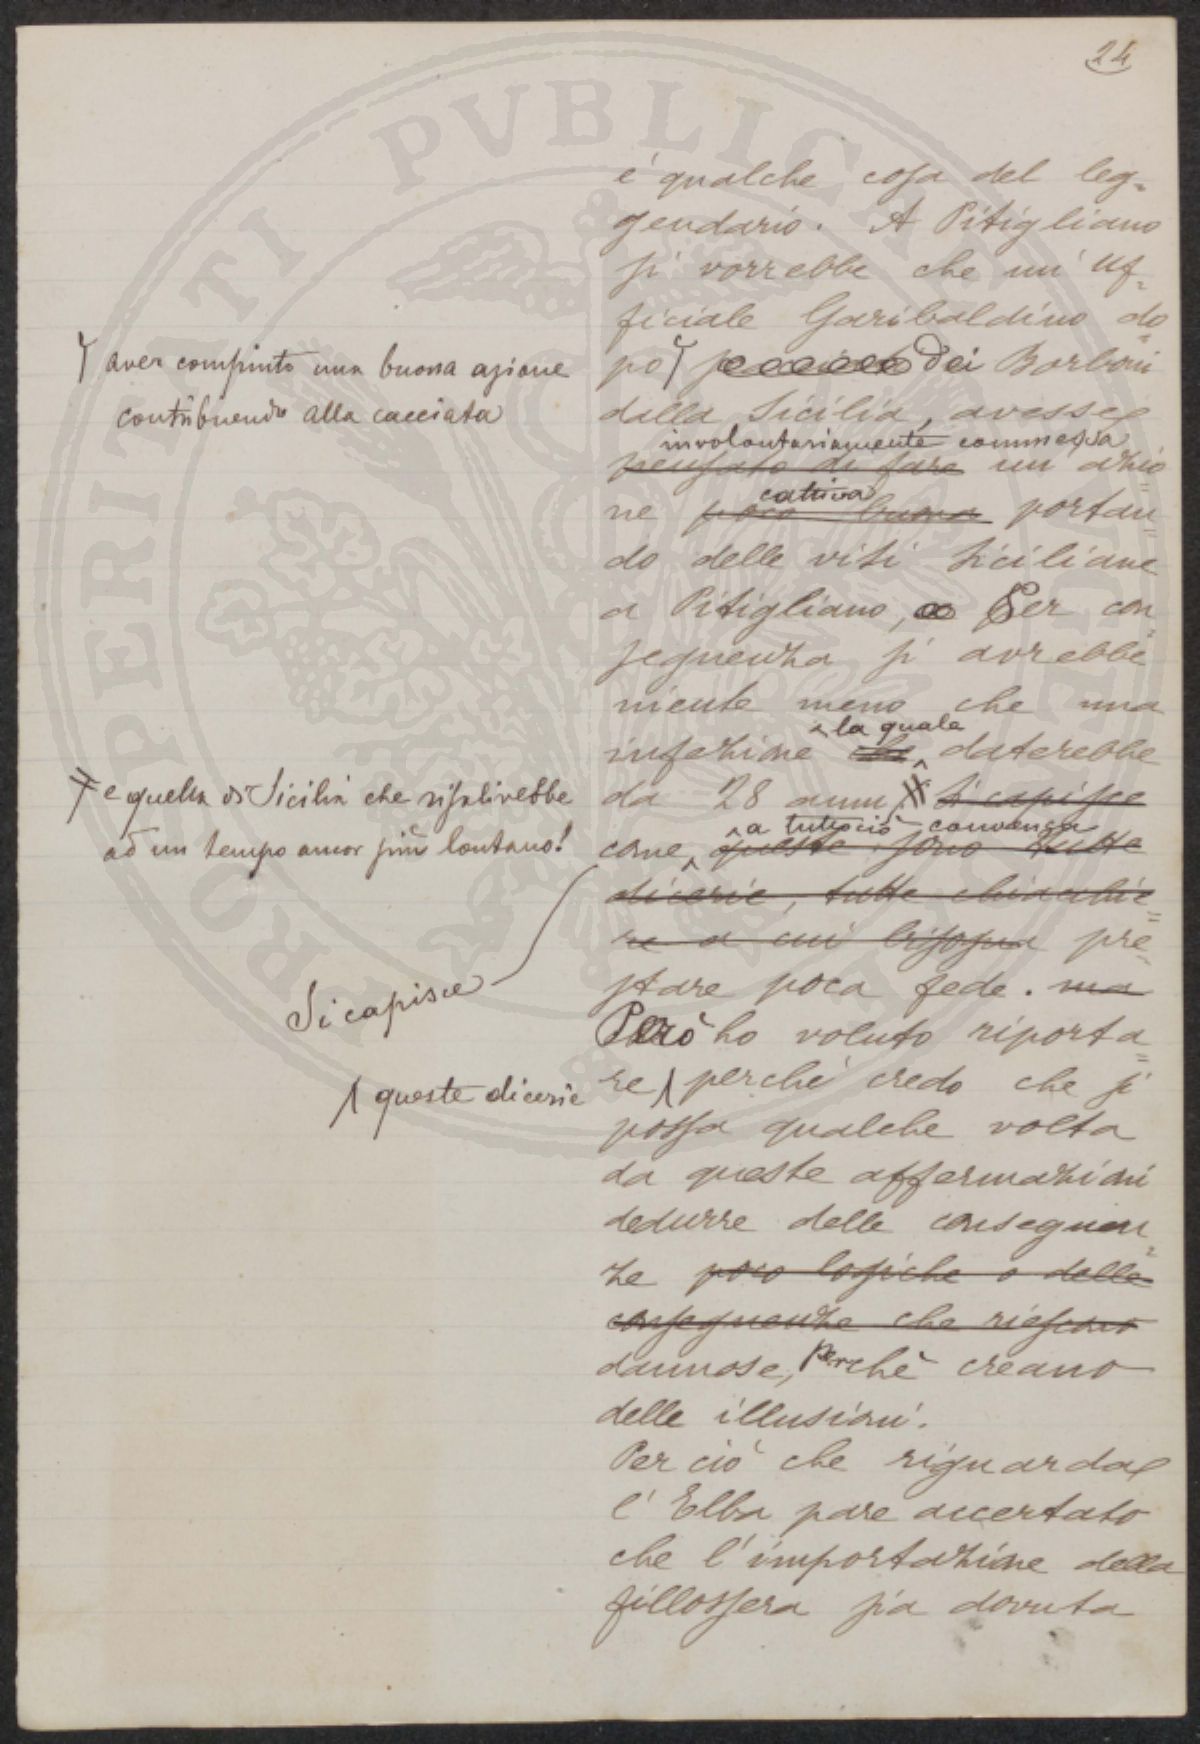 24
è qualche cosa del leg-
gendario. A Pitigliano
si vorrebbe che un' Uf-
ficiale Garibaldino do-
po dei Borboni
aver compiuto una buona azione
contribuendo alla cacciata
dalla Sicilia, avesse
involontariamente commessa
pensato di fare un' azio-
cattiva
ne poco buona portan-
do delle viti Siciliane
a Pitigliano, Per con-
seguenza si avrebbe
niente meno che una
la quale
infezione daterebbe
da 28 anni Si capisce
e quella di Sicilia che risalirebbe
ad un tempo ancor più lontano!
Si capisce
a tutto ciò convenga
come queste sono tutte
dicerie, tutte chiacchie-
re a cui bisogna pre-
stare poca fede. ma
Però ho voluto riporta-
re perchè credo che si
queste dicerie
possa qualche volta
da queste affermazioni
dedurre delle conseguen-
ze poco logiche o delle
conseguenze che riescano
dannose, perchè creano
delle illusioni.
Per ciò che riguarda
l' Elba pare accertato
che l'importazione della
fillossera sia dovuta
PROSPERITATI PVBLICAE AVGENDAE